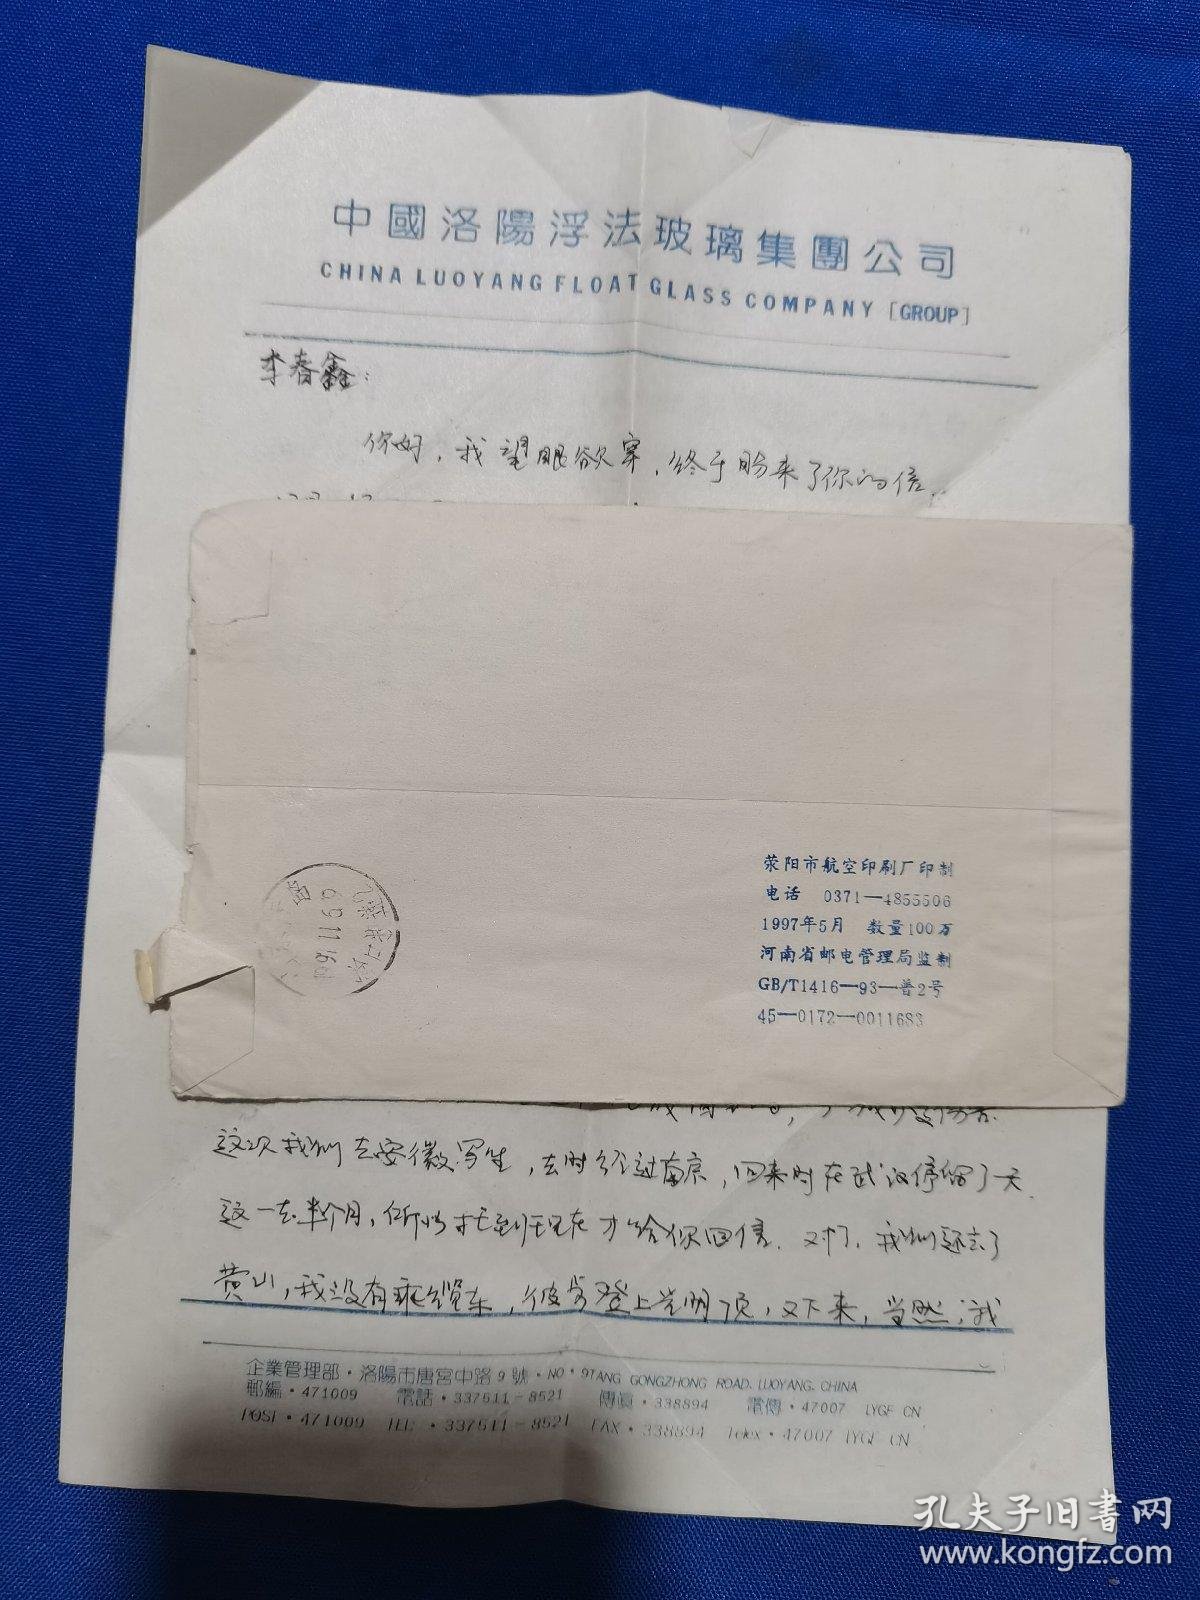 中國洛陽浮法玻璃集團公司
CHINA LUOYANG FLOAT GLASS COMPANY [GROUP]
李春鑫：
你好，我望眼欲穿，终于盼来了你的信。
荥阳市航空印刷厂印制
电话 0371—4855506
1997年5月 数量100万
河南省邮电管理局监制
GB/T1416—93—普2号
45—0172—0011683
这次我们去安徽写生，去时经过南京，回来时在武汉停留了一天.
这一去半个月，所以才到现在才给你回信. 对了，我们还去了
黄山，我没有乘缆车，徒步登上光明顶，又下来，当然，我
企業管理部·洛陽市唐宮中路9號·NO·9TANG GONGZHONG ROAD. LUOYANG. CHINA
郵編·471009 電話·337511-8521 傳真·338894 電傳·47007 LYGF CN
POST·471009 TEL·337511-8521 FAX·338894 Telex·47007 LYGF CN
孔夫子旧書网
www.kongfz.com